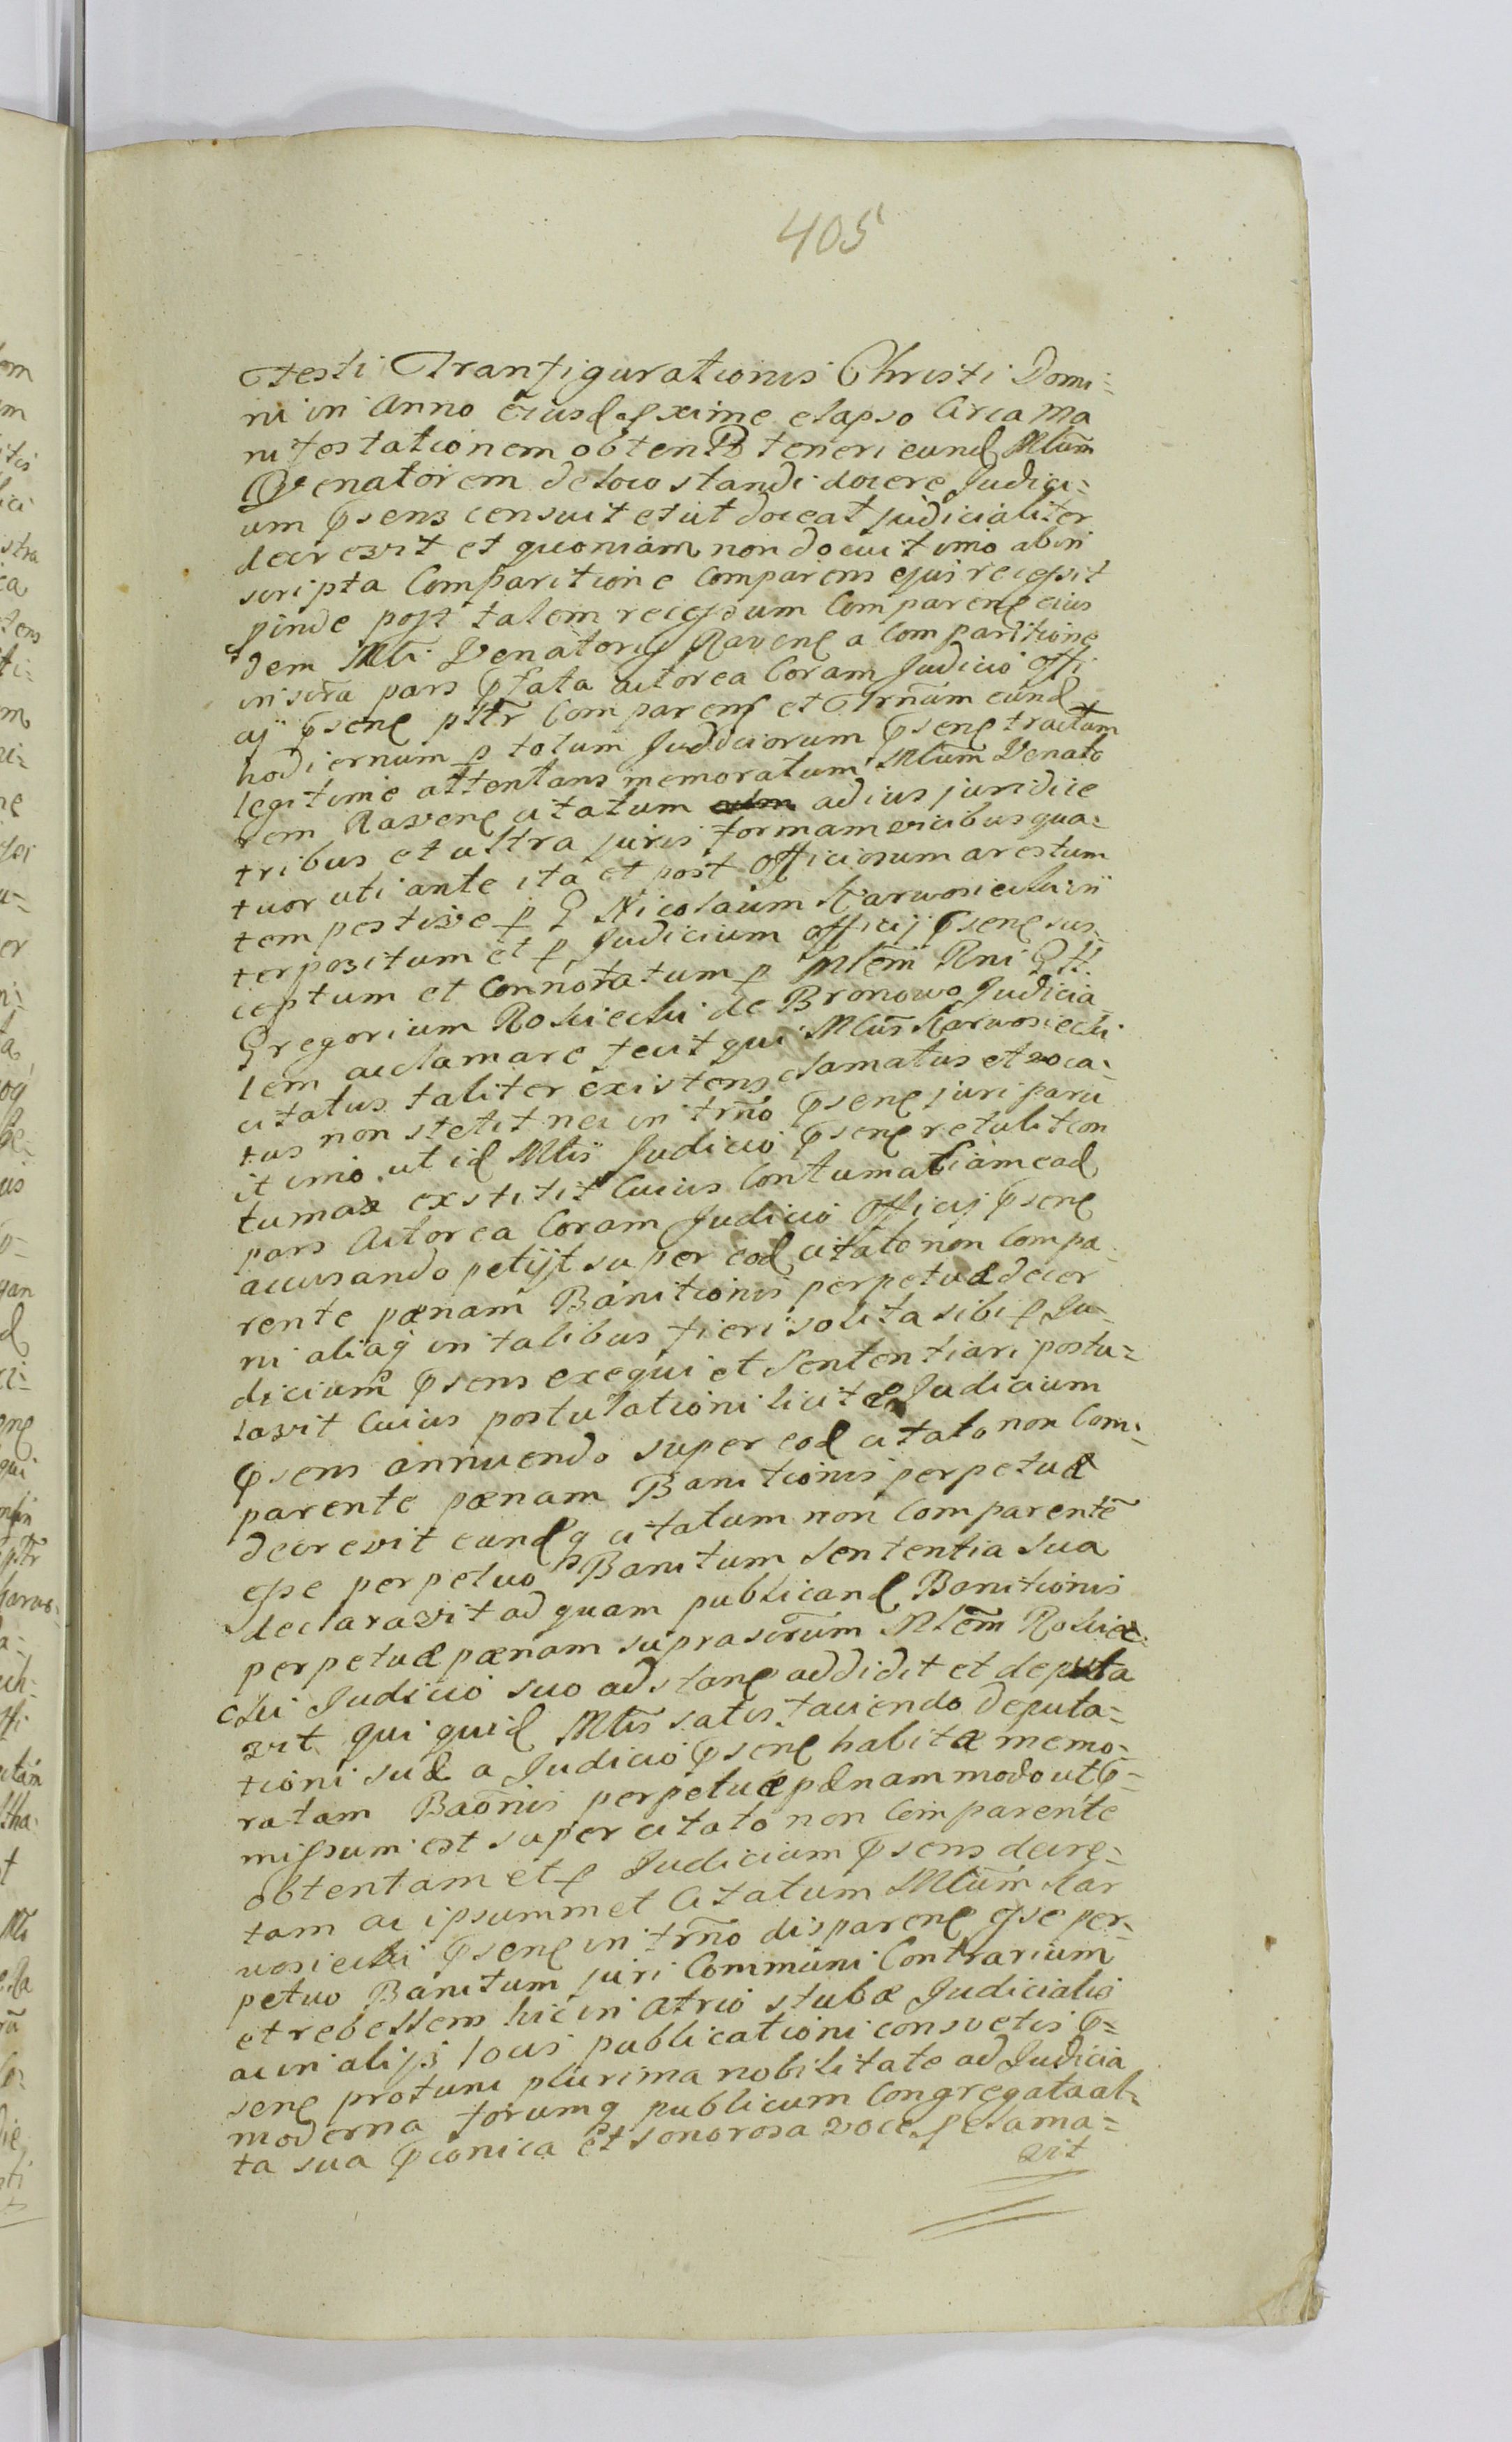 405
Festi Transfigurationis Christi Domi=
ni in Anno Eiusd pxime elapso Circa Ma
nifestationem obtent teneri eund Mlum
Venatorem de loco standi docere Judici=
um psens censuit et ut doceat judicialiter
decrevit et quoniam non docuit imo ab in
scripta Comparitione Comparens ejus recessit
pinde post talem recessum Comparent eius
dem Mli Venatoris Ravens a Comparitione
inscra pars pfata actorea Coram Judicio offi
cij psens pltr Comparens et Trnum eund
hodiernum p totum Judiciorum psent tractum
legitime attentans memoratum Mlum Venato
rem Ravens citatum ad ius juridice
tribus et ultra juris formam vicibus qua=
tuor uti ante ita et post Officiosum arestum
tempestive p G Nicolaum Karwosiecki in
terpositum et p Judicium officij psens sus=
ceptum et Connotatum p Mlem Rni G H.
Gregorium Rosciecki de Bronowo Judicia
lem acclamare fecit qui Mlus Karwosiecki
citatus taliter existens clamatus et voca=
tus non stetit nec in trno psens juri paru
it imo ut id Mlis Judicio psens retulit con
tumax exstitit Cuius Contumatiam ead
pars Actorea Coram Judicio Officij psens
accusando petijt super eod citato non Compa
rente pænam Banitionis perpetuæ decer
ni aliaq in talibus fieri solita sibi p Ju=
dicium psens exequi et Sententiari postu=
lavit Cuius postulationi licitæ Judicium
psens annuendo super eod citato non Com=
parente pænam Banitionis perpetuæ
decrevit eundq citatum non Comparente
esse perpetuo Banitum sententia sua
declaravit ad quam publicand Banitionis
perpetuæ pænam suprascrum Mlem Roscie=
cki Judicio suo adstans addidit et deputa
vit qui quid Mlis satisfaciendo deputa=
tioni suæ a Judicio psens habitæ memo=
ratam Baonis perpetuæ pænam modo ut p=
missum est super citato non Comparente
obtentam et p Judicium psens decre=
tam ac ipsummet Citatum Mlum Kar
wosiecki psens in trno disparens esse per=
petuo Banitum juri Communi Contrarium
et rebellem hic in Atrio stubæ Judicialis
ac in alijs locis publicationi consvetis p=
sens protunc plurima nobilitate ad Judicia
moderna forumq publicum Congregata al=
ta sua pconica et sonorosa voce pclama=
vit